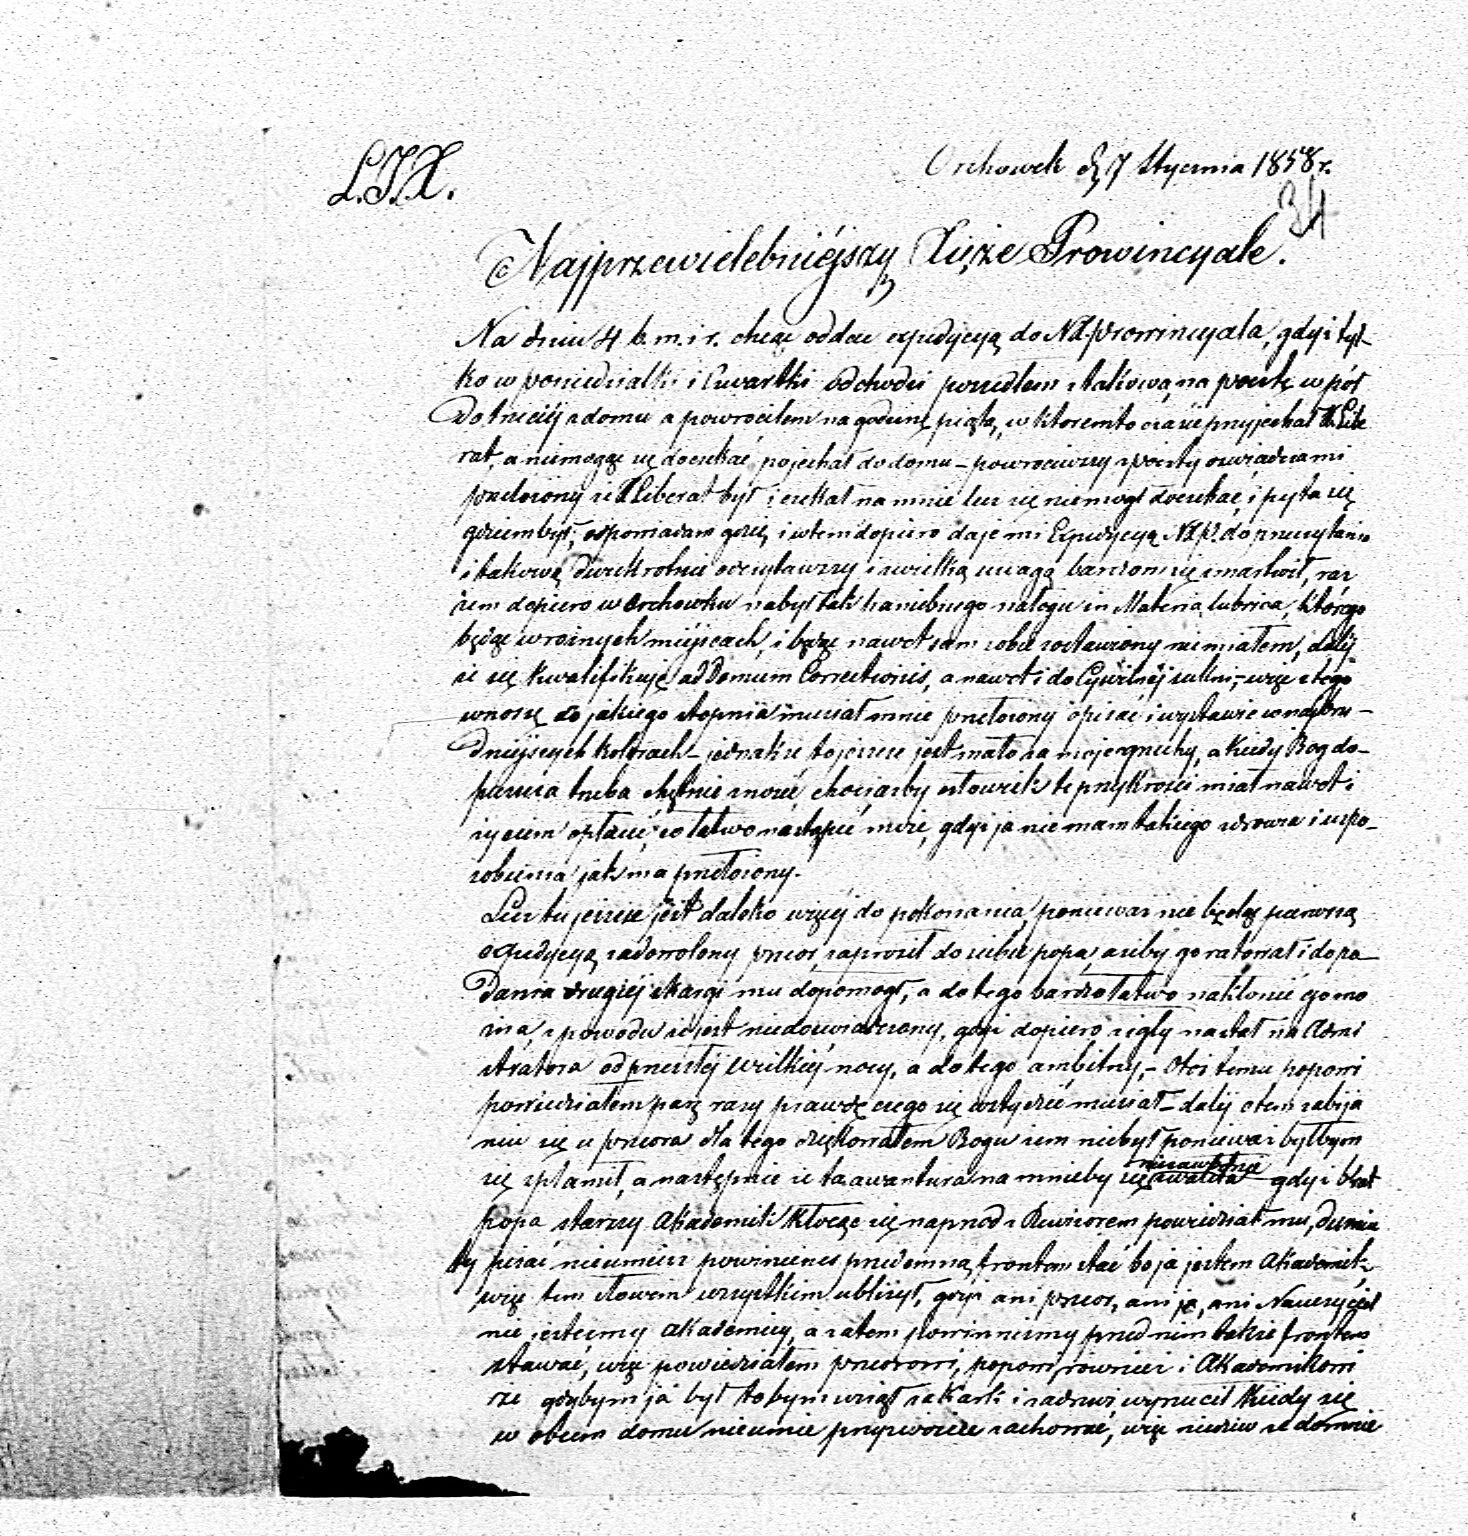 L.J.X.
Orchowek d. 7 Stycznia 1858 r.
34
Najprzewielebniéjszy Xięże Prowincyale.
Na dniu 4 b. m. i r. chcąc oddać expedycyą do NX. Prowincyała, gdyż tyl-
ko w poniedziałki i Czwartki odchodzi poszedłem z takową na pocztę w pół
do trzeciéj z domu a powrociłem na godzinę piątą, w ktoremto czasie przyjechał X. Libe
rat, a niemogąc się doczekać, pojechał do domu – powrociwszy z poczty oswiadcza mi
przełożony że X Liberat był i czekał na mnie lecz się niemogł doczekać, i pyta się
gdziem był; odpowiadam gdzie, i wtem dopiero daje mi Expedycyą NXP. do przeczytania
i takową dwukrotnie odczytawszy z wielką uwagą bardzom się zmartwił, raz
żem dopiero w Orchowku nabył tak haniebnego nałogu in Materia lubrica, którego
będąc w rożnych miejscach, i będąc nawet sam sobie zostawiony niemiałem, daléj
że się kwalifikuję ad Domum Correctionis, a nawet i do Cywilnéj sukni; – więc z tego
wnoszę do jakiego stopnia musiał mnie przełożony opisać i wystawić w najbru-
dniejszych kolorach – jednakże to jeszcze jest mało za moje grzechy, a kiedy Bog do-
puszcza trzeba chętnie znosić, chociażby człowiek te przykrości miał nawet i
życiem opłacić, co łatwo nastąpić może, gdyż ja nie mam takiego zdrowia i uspo-
sobienia jak ma przełożony.
Lecz tu jeszcze jest daleko więcéj do pokonania, ponieważ nie będąc pierwszą
expedycyą zadowolony przeor, zaprosił do siebie popa, ażeby go ratował i do po
dania drugiéj skargi mu dopomogł, a do tego bardzo łatwo nakłonić go mo
żna, z powodu że jest niedoswiadczony, gdyż dopiero z igły nastał na Admi
stratora od przeszłéj wielkiéj nocy, a do tego ambitny, – Otoż temu popowi
powiedziałem parę razy prawdę czego się wstydzić musiał – daléj o tem zabija
niu się u przeora dla tego dziękowałem Bogu żem niebył ponieważ byłbym
się splamił, a następnie że ta awantura na mnieby się niezawodnie zwaliła gdyż brat
popa starszy Akademik kłocąc się naprzod z Rewizorem powiedział mu, durniu
ty pisać nieumiesz powinienes przedemną frontem stać bo ja jestem Akademik,
więc tem słowem wszystkim ubliżył, gdyż ani przeor, ani ja, ani Nauczyciel
nie jestesmy Akademicy, a zatem powinnismy przed nim także frontem
stawać, więc powiedziałem przeorowi, popowi, rownież i Akademikowi
że gdybym ja był tobym wziął za kark i za drzwi wyrzucił kiedy się
w obcem domu nieumie przyzwoicie zachować, więc niedziw że do mnie